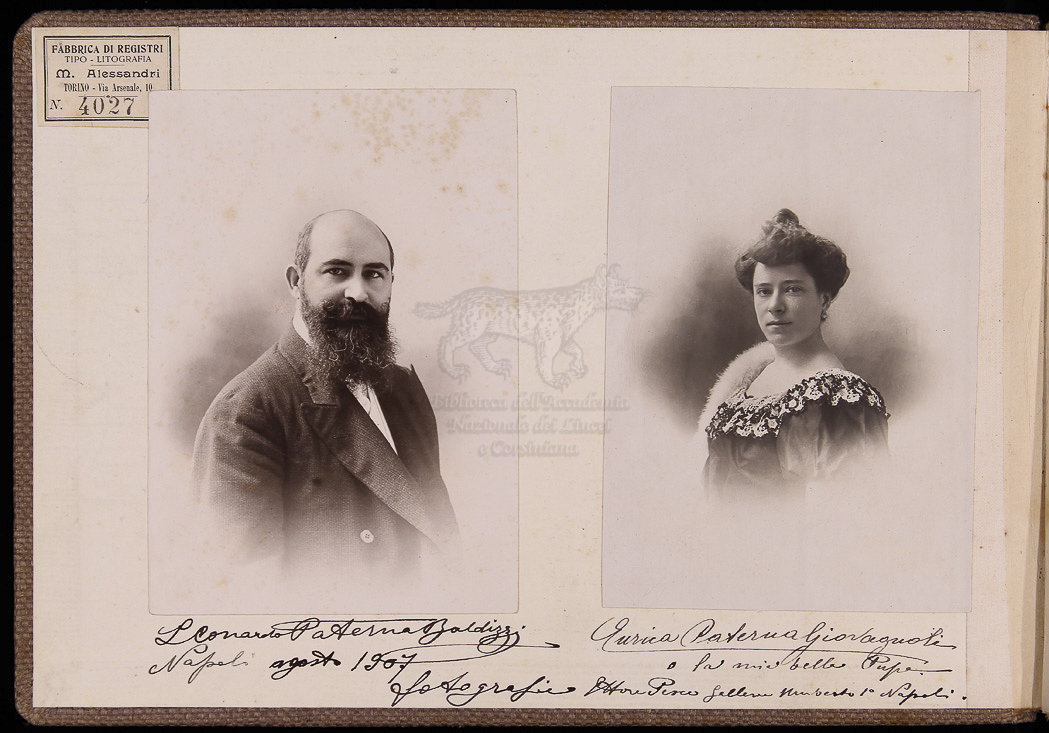 FABBRICA DI REGISTRI
TIPO - LITOGRAFIA
M. Alessandri
TORINO - Via Arsenale, 10
N. 4027
Biblioteca dell'Accademia
Nazionale dei Lincei
e Corsiniana
Leonardo Paterna Baldizzi
Napoli agosto 1907
Aurica Paterna Giovagnoli
o la mia bella Pupa
fotografie Ettore Pesce Galleria Umberto 1º Napoli.